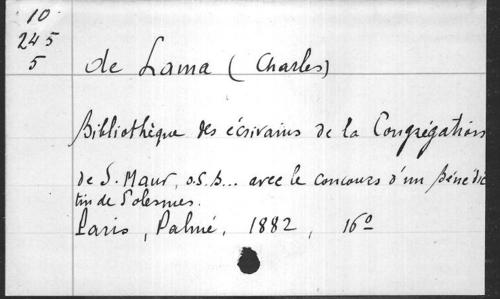 10
245
5
de Lama (Charles)
Bibliothèque des écrivains de la Congrégation
de S. Maur, o.S.b... avec le concours d'un Bénédic
tin de Solesmes.
Paris, Palmé, 1882, 16º